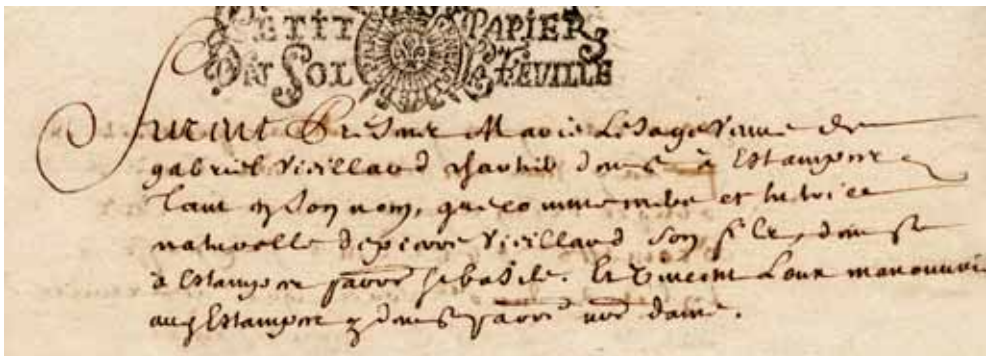 PETIT PAPIER
UN SOL LA FEUILLE
furent presens Marie Lesage veuve de
gabriel vieillard dem à Estampes
tant en son nom, que comme mere et tutrice
naturelle de pierre vieillard son fils, dem
à Estampes parr st basile. Et vincent Manouvri
aud Estampes y dem parr nre dame.